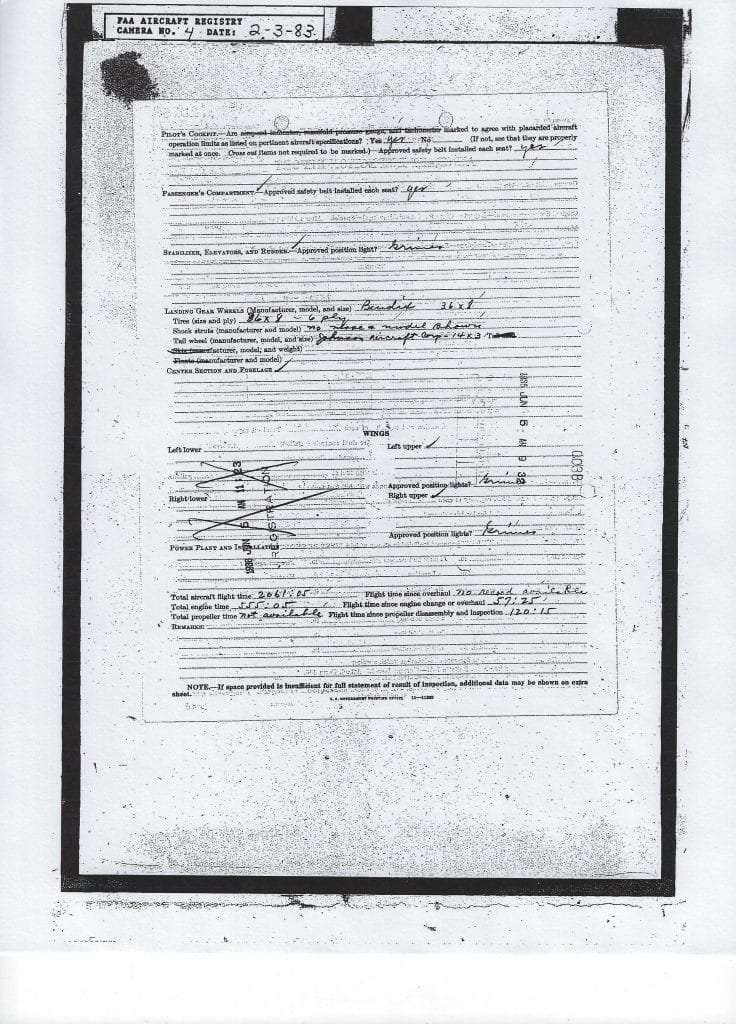 FAA AIRCRAFT REGISTRY
CAMERA NO. 4 DATE: 2-3-83
PILOT'S COCKPIT.—Are airspeed indicator, manifold pressure gauge, and tachometer marked to agree with placarded aircraft
operation limits as listed on pertinent aircraft specifications? Yes yes No (If not, see that they are properly
marked at once. Cross out items not required to be marked.) Approved safety belt installed each seat? yes
PASSENGER'S COMPARTMENT.—Approved safety belt installed each seat? yes
STABILIZER, ELEVATORS, AND RUDDER.—Approved position light? Grimes
LANDING GEAR WHEELS (Manufacturer, model, and size) Bendix 36x8
Tires (size and ply) 36x8 - 6 ply
Shock struts (manufacturer and model) no model shown
Tail wheel (manufacturer, model, and size) Johnson Aircraft Corp - 14x3
Skis (manufacturer, model, and weight)
Floats (manufacturer and model)
CENTER SECTION AND FUSELAGE
1955 JUN 6
WINGS
Left lower
Left upper
Approved position lights? Grimes
Right lower
Right upper
REGISTRATION
Approved position lights? Grimes
POWER PLANT AND INSTALLATION
Total aircraft flight time 2061:05 Flight time since overhaul no record available
Total engine time 555:05 Flight time since engine change or overhaul 57:25
Total propeller time not available Flight time since propeller disassembly and inspection 120:15
REMARKS:
NOTE.—If space provided is insufficient for full statement of result of inspection, additional data may be shown on extra
sheet.
U. S. GOVERNMENT PRINTING OFFICE